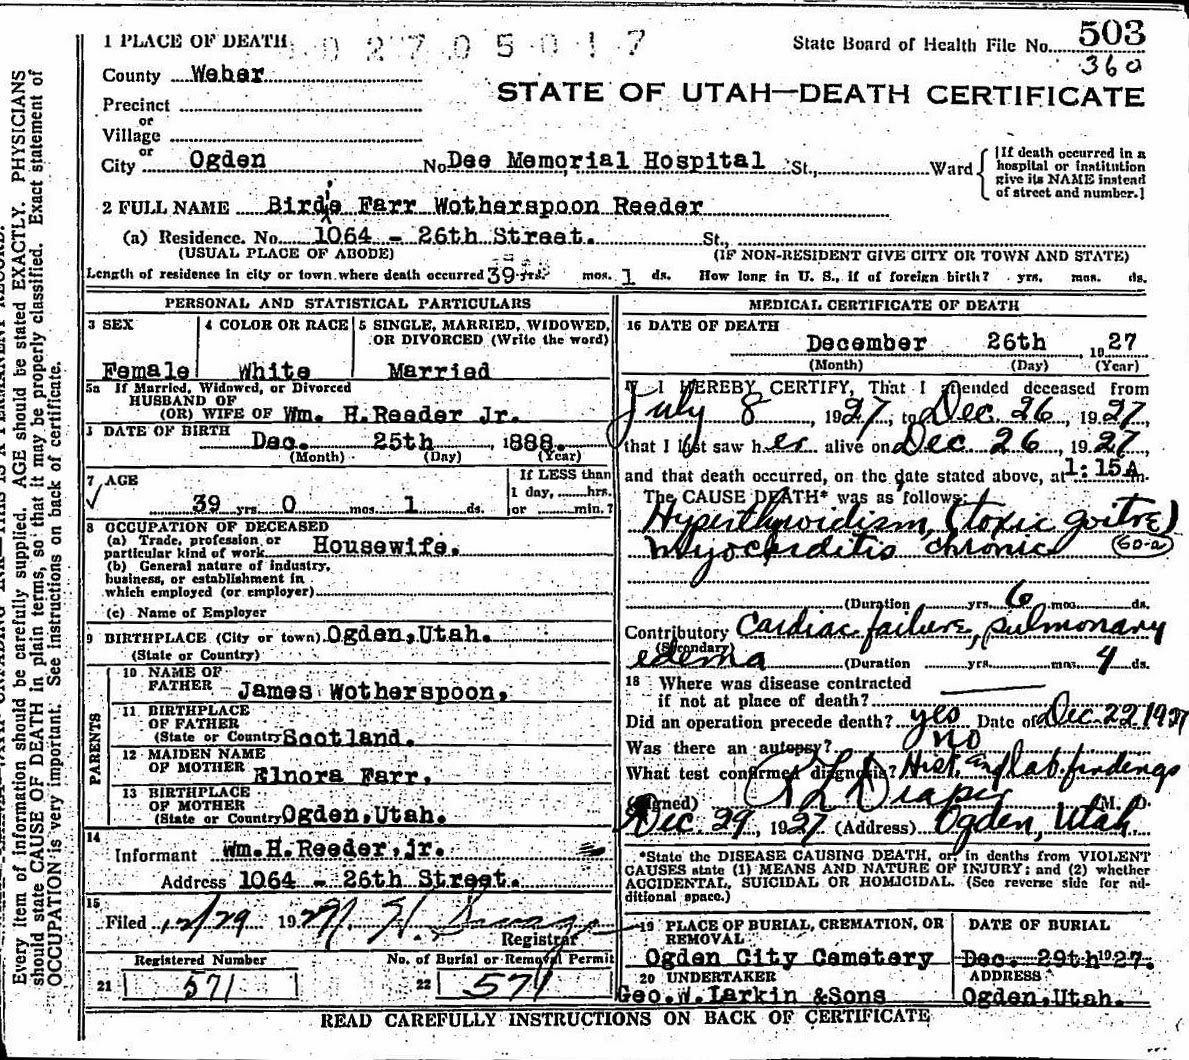 1 PLACE OF DEATH 0 2 7 0 5 0 1 7
State Board of Health File No. 503
360
County Weber
STATE OF UTAH—DEATH CERTIFICATE
Precinct
or
Village
or
City Ogden No. Dee Memorial Hospital St., Ward {[If death occurred in a hospital or institution give its NAME instead of street and number.]
2 FULL NAME Birdie Farr Wotherspoon Reeder
(a) Residence. No. 1064 - 26th Street. St.,
(USUAL PLACE OF ABODE) (IF NON-RESIDENT GIVE CITY OR TOWN AND STATE)
Length of residence in city or town where death occurred 39 yrs. mos. 1 ds. How long in U. S., if of foreign birth? yrs. mos. ds.
PERSONAL AND STATISTICAL PARTICULARS
3 SEX
Female
4 COLOR OR RACE
White
5 SINGLE, MARRIED, WIDOWED,
OR DIVORCED (Write the word)
Married
5a If Married, Widowed, or Divorced
HUSBAND OF
(OR) WIFE OF Wm. H.Reeder Jr.
DATE OF BIRTH
Dec. 25th , 1888.
(Month) (Day) (Year)
7 AGE
39 yrs. 0 mos. 1 ds.
If LESS than
1 day, hrs.
or min.?
8 OCCUPATION OF DECEASED
(a) Trade, profession or
particular kind of work Housewife.
(b) General nature of industry,
business, or establishment in
which employed (or employer)
(c) Name of Employer
9 BIRTHPLACE (City or town) Ogden,Utah.
(State or Country)
PARENTS
10 NAME OF
FATHER James Wotherspoon,
11 BIRTHPLACE
OF FATHER
(State or Country Scotland.
12 MAIDEN NAME
OF MOTHER Elnora Farr.
13 BIRTHPLACE
OF MOTHER
(State or Country Ogden,Utah.
14
Informant Wm.H.Reeder,jr.
Address 1064 - 26th Street.
15
Filed 12/29 1927
Registrar
Registered Number
21 571
No. of Burial or Removal Permit
22 571
MEDICAL CERTIFICATE OF DEATH
16 DATE OF DEATH
December 26th , 1927
(Month) (Day) (Year)
I HEREBY CERTIFY, That I attended deceased from
July 8 , 1927, to Dec 26 , 1927,
that I last saw her alive on Dec 26 , 1927,
and that death occurred, on the date stated above, at 1:15A m.
The CAUSE DEATH* was as follows:
Hyperthyroidism, (toxic goitre)
Myocarditis chronic (60-a)
(Duration yrs. 6 mos. ds.
Contributory Cardiac failure, pulmonary
(Secondary)
edema (Duration yrs. mos. 4 ds.
18 Where was disease contracted
if not at place of death?
Did an operation precede death? yes Date of Dec 22 1927
Was there an autopsy? no
What test confirmed diagnosis? Hist. and lab. findings
(Signed) R L Draper M. D.
Dec 29, 1927 (Address) Ogden, Utah
*State the DISEASE CAUSING DEATH, or, in deaths from VIOLENT
CAUSES state (1) MEANS AND NATURE OF INJURY; and (2) whether
ACCIDENTAL, SUICIDAL OR HOMICIDAL. (See reverse side for ad-
ditional space.)
19 PLACE OF BURIAL, CREMATION, OR
REMOVAL
Ogden City Cemetery
DATE OF BURIAL
Dec. 29th 1927.
20 UNDERTAKER
Geo.W.Larkin &Sons
ADDRESS
Ogden,Utah.
READ CAREFULLY INSTRUCTIONS ON BACK OF CERTIFICATE
Every item of information should be carefully supplied. AGE should be stated EXACTLY. PHYSICIANS
should state CAUSE OF DEATH in plain terms, so that it may be properly classified. Exact statement of
OCCUPATION is very important. See instructions on back of certificate.